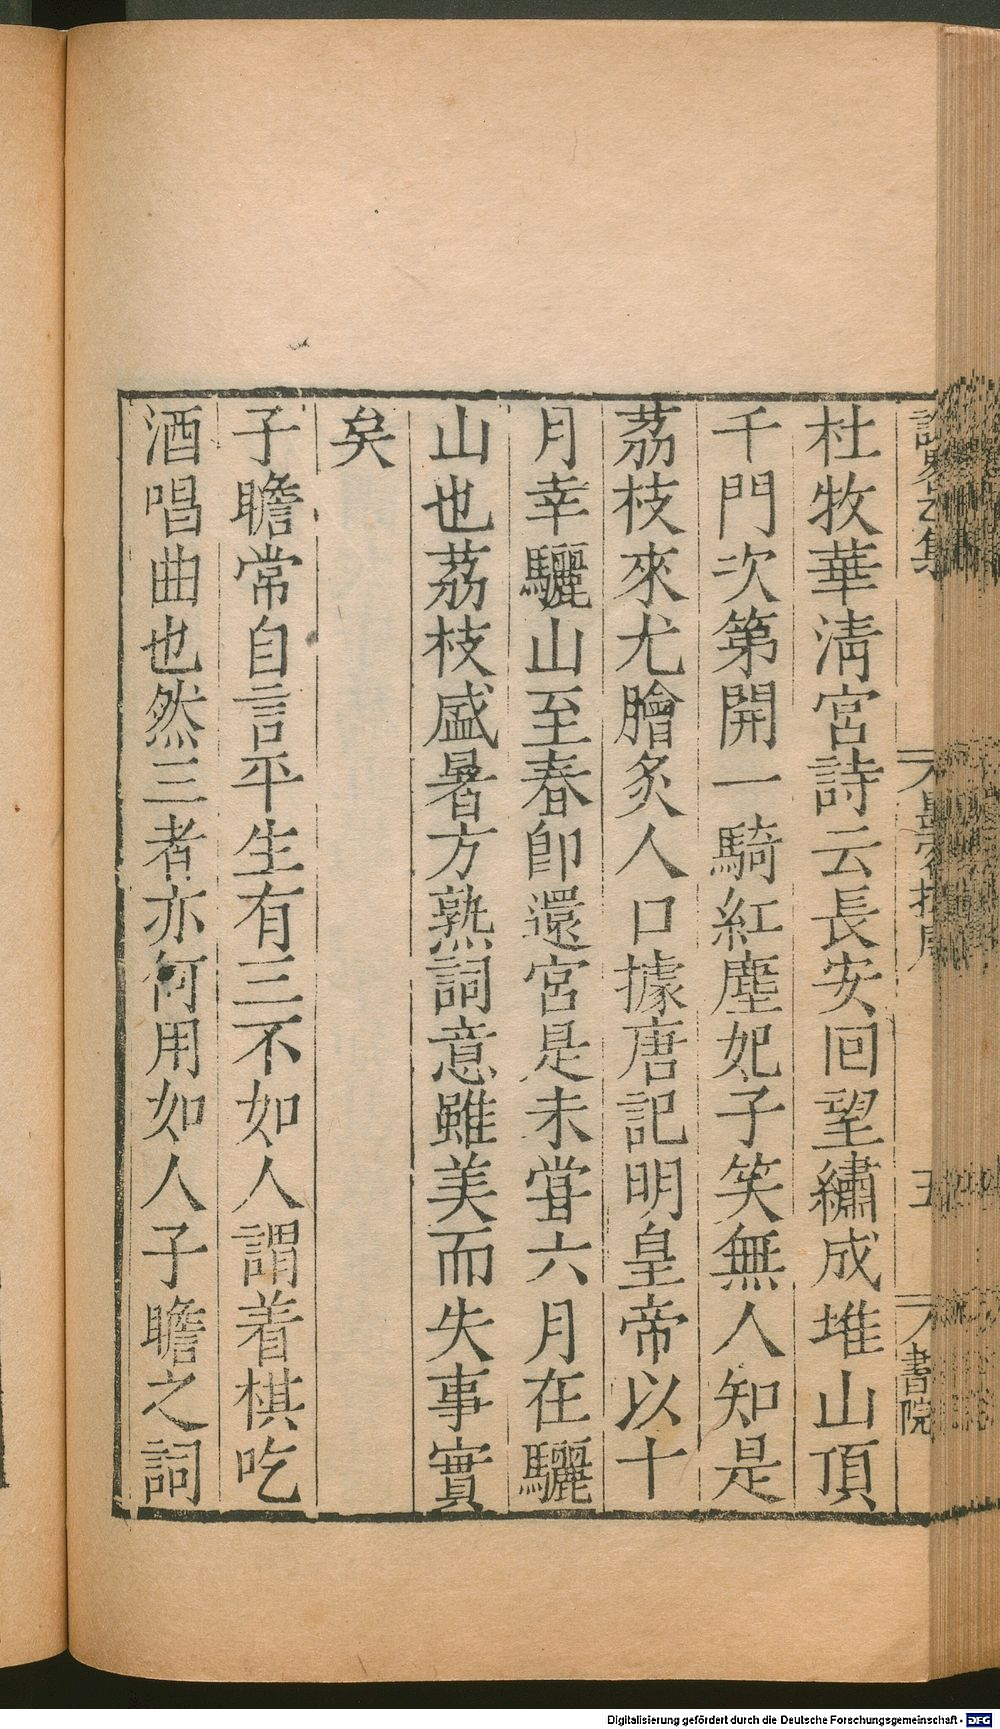 杜牧華淸宮詩云長安回望繡成堆山頂
千門次第開一騎紅塵妃子笑無人知是
荔枝來尤膾炙人口據唐記明皇帝以十
月幸驪山至春卽還宮是未甞六月在驪
山也荔枝盛暑方熟詞意雖美而失事實
矣
子瞻常自言平生有三不如人謂着棋吃
酒唱曲也然三者亦何用如人子瞻之詞
五
書院
Digitalisierung gefördert durch die Deutsche Forschungsgemeinschaft - DFG